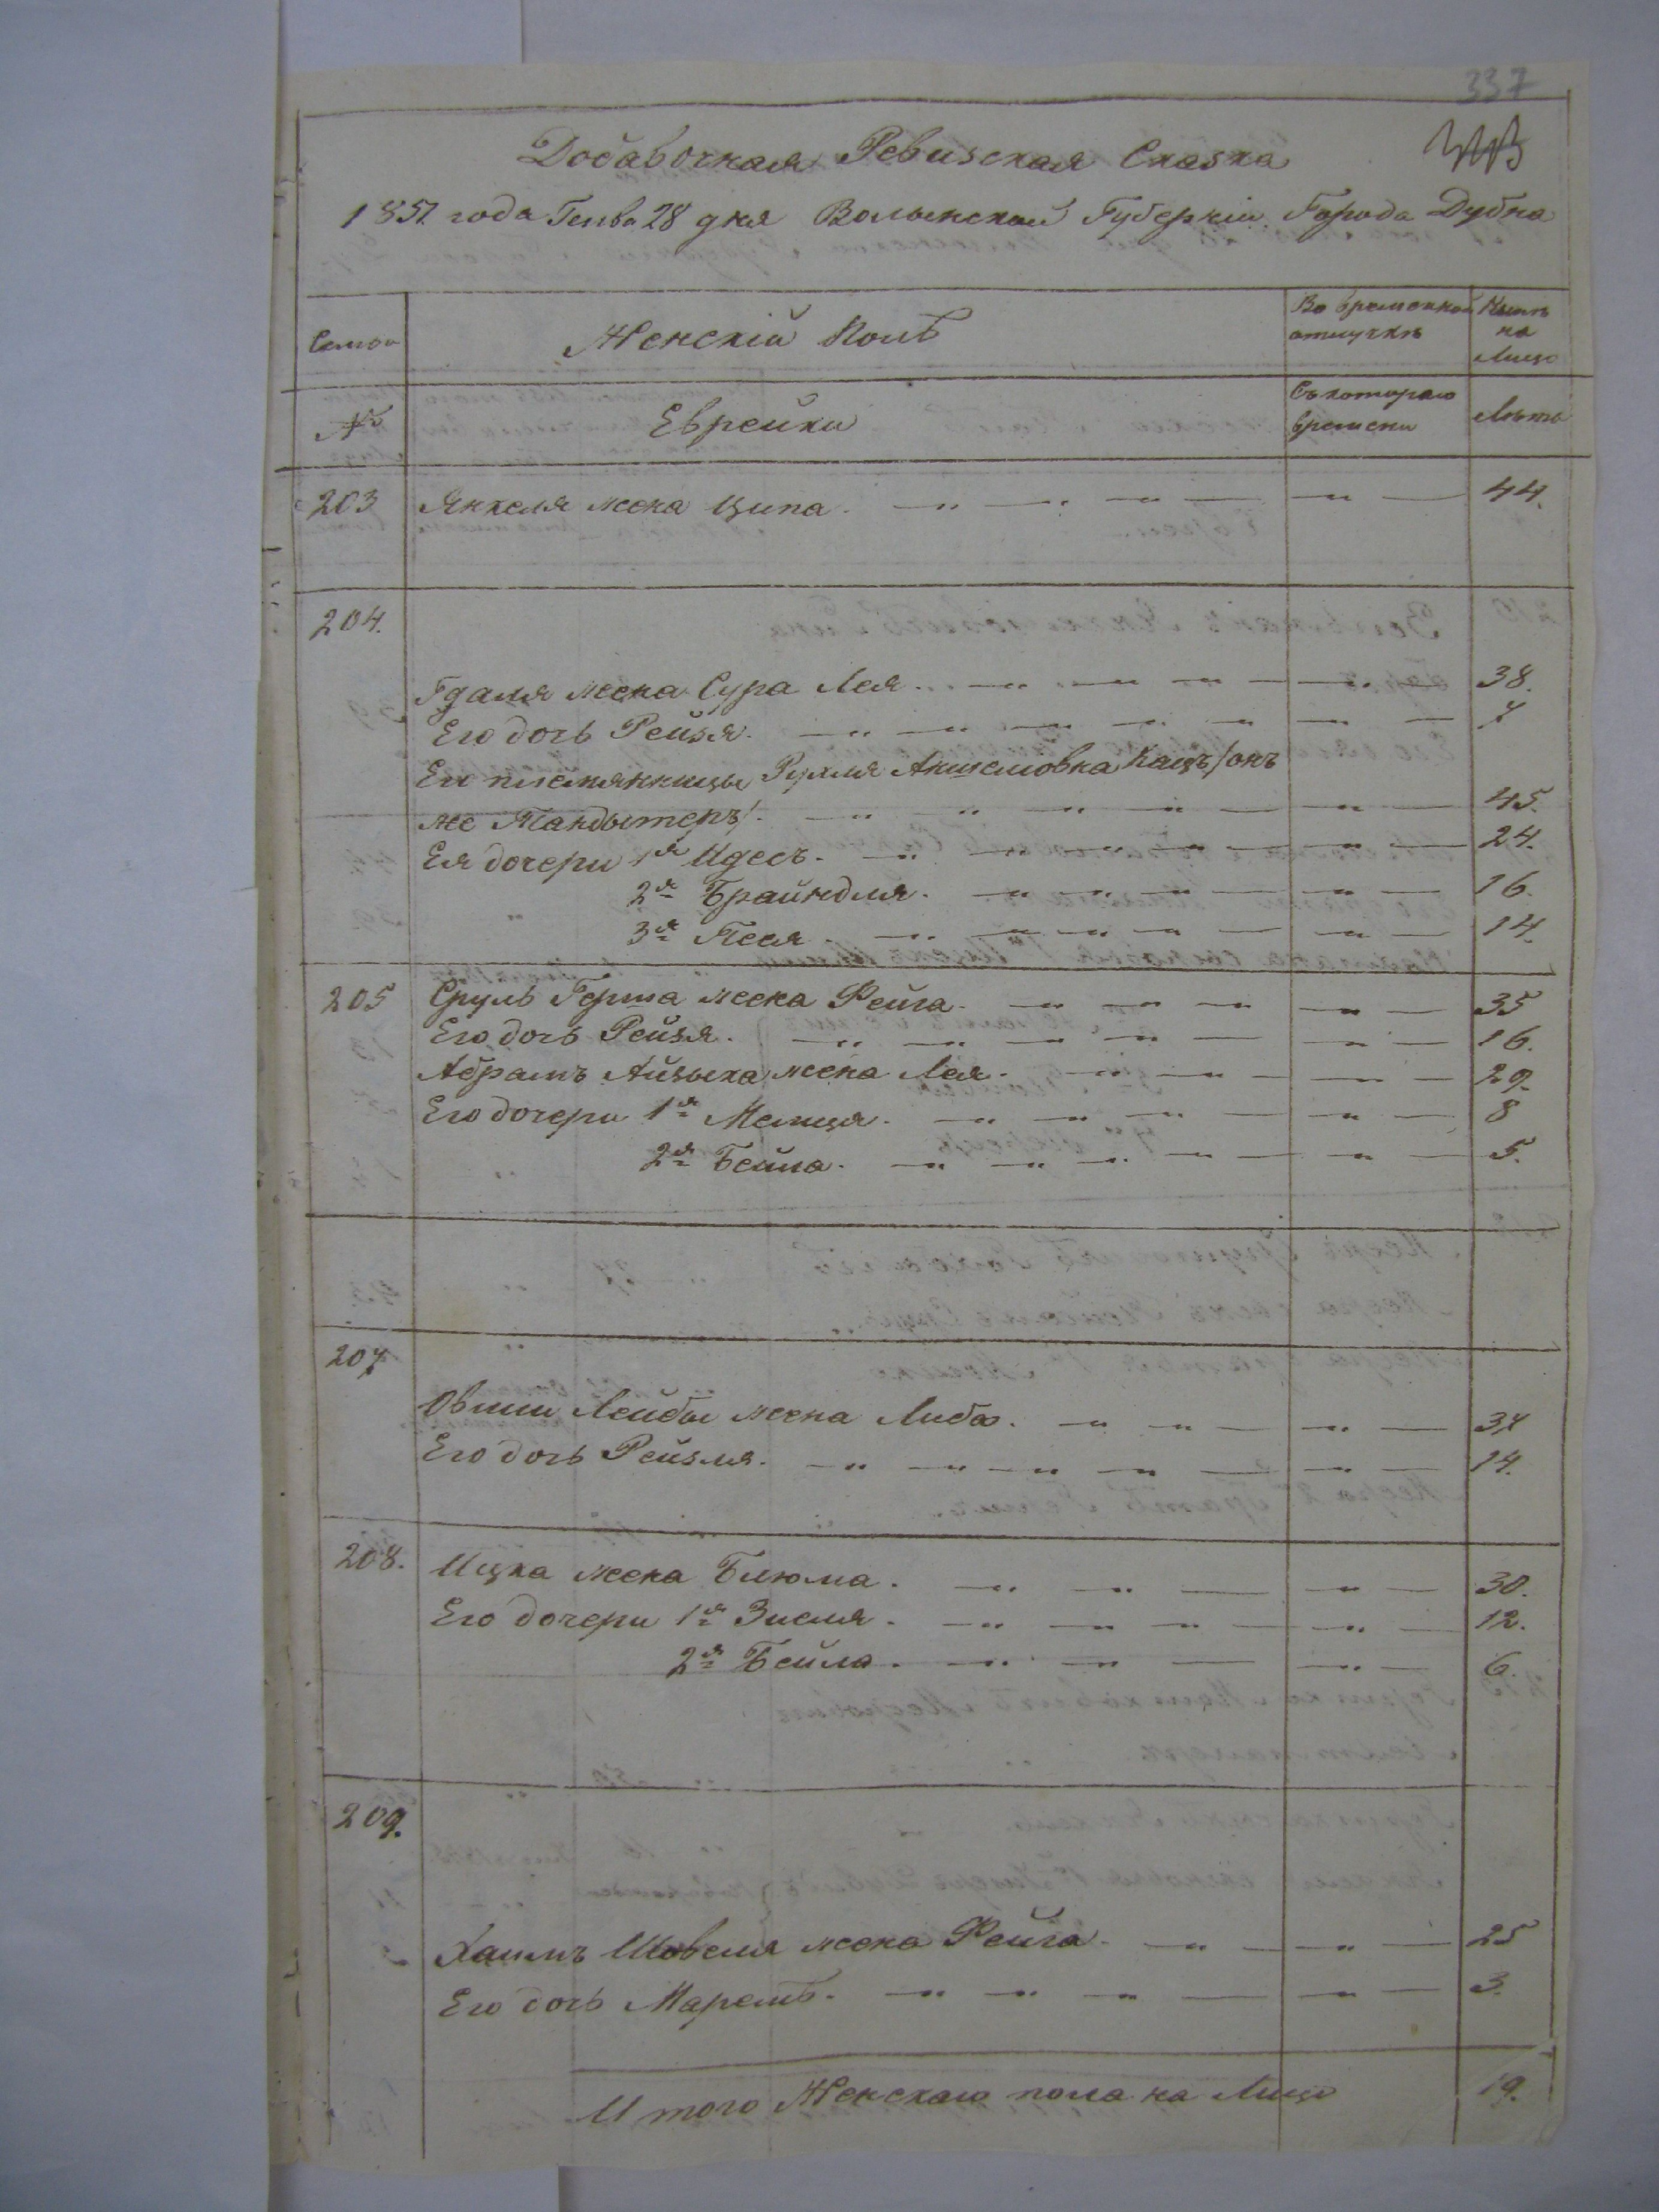 337
Добавочная Ревизская Сказка
1857 года Генва 28 дня Волынской Губернии Города Дубна
Семьи
Женскій Полъ
Во временной отлучкѣ
Нынѣ на Лицо
№
Еврейки
Съ котораго времени
Лѣта
203 Янкеля жена Ципа. 44.
204.
Гдаля жена Сура Лея. 38.
Его дочь Рейзя. 7
Его племянницы Рухля Аншелювна Кацъ /онъ
же Мандытеръ/. 45.
Ея дочери 1я Идесъ. 24.
2я Брайндля. 16.
3я Песя. 14.
205 Сруль Герша жена Фейга. 35
Его дочь Рейзя. 16.
Абрамъ Айзыка жена Лея. 29.
Его дочери 1я Малця. 8
2я Бейла. 5.
207
Овшии Лейбы жена Либа. 37
Его дочь Рейзля. 14.
208. Ицка жена Блюма. 30.
Его дочери 1я Зисля. 12.
2я Бейла. 6.
209.
Хаимъ Шовеля жена Фейга. 25
Его дочь Маремъ. 3.
И того Женскаго пола на Лицо 19.